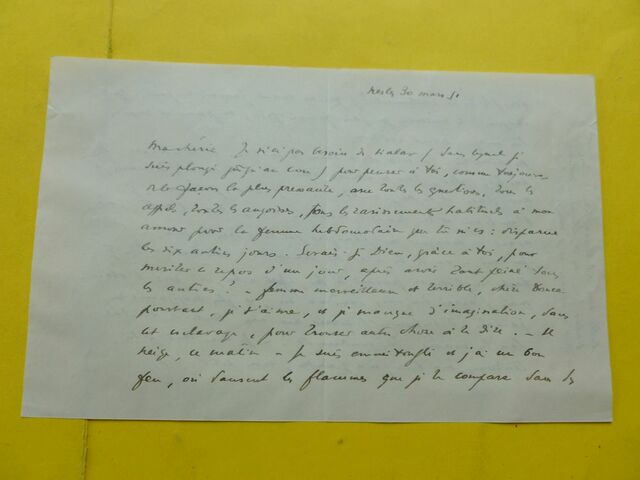 30 mars 51
Ma chérie Je n'ai pas besoin de (dans lequel je
suis plongé jusqu'au cou) pour penser à toi, comme toujours
de la façon la plus pressante, avec toutes les questions, tous les
appels, toutes les angoisses, tous les habituels à mon
amour pour la femme hebdomadaire que tu m'es : disparue
les six autres jours. Serais-je Dieu, grâce à toi, pour
mériter le repos d'un jour, après avoir tant peiné tous
les autres ? – femme merveilleuse et terrible, chère douce
pourtant, je t'aime, et je manque d'imagination, dans
cet esclavage, pour trouver autre chose à te dire. – Il
neige, ce matin – Je suis emmitouflé et j'ai un bon
feu, où dansent les flammes que je te compare dans